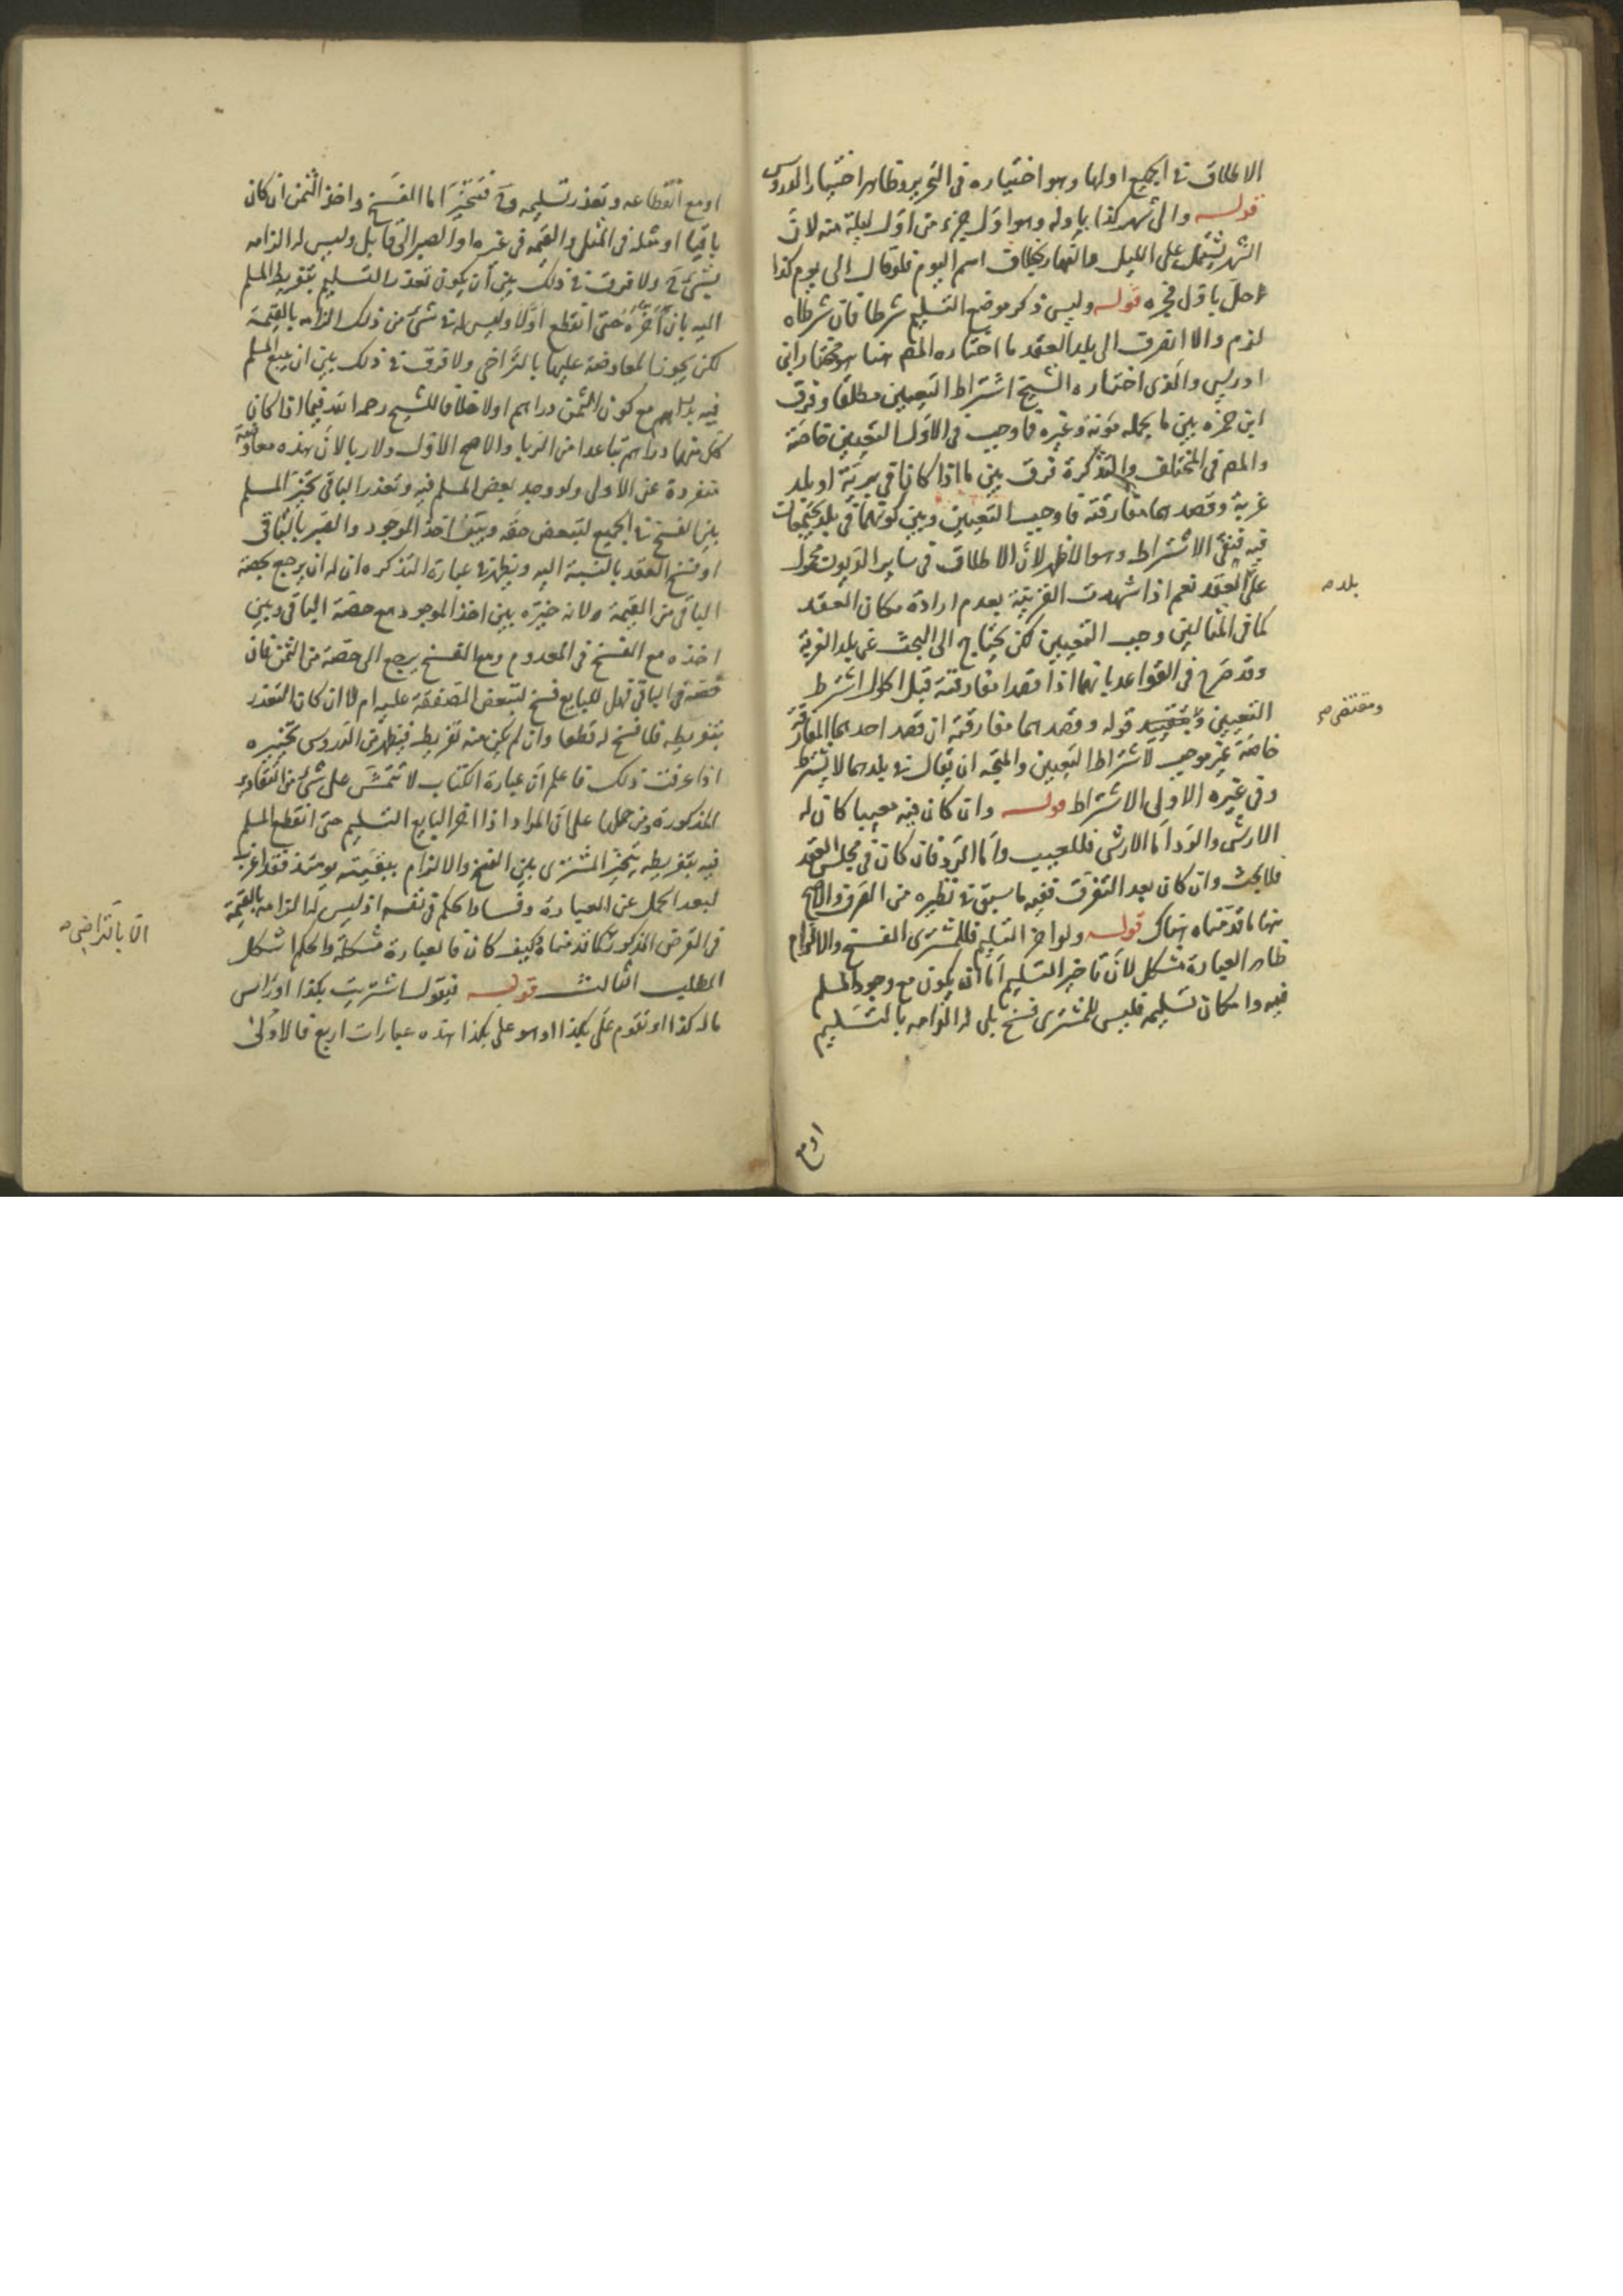 الاطلاق في الجميع اولها وهو اختياره في التحرير وظاهر اختيار الدروس
قوله والى شهر كذا باوله وهو اول جزء من اول ليلة منه لان
الشهر يشتمل على الليل والنهار بخلاف اسم اليوم فلو قال الى يوم كذا
حل باول فجره قوله وليس ذكر موضع التسليم شرطا فان شرطاه
لزم والا انصرف الى بلد العقد ما اختاره المص هنا هو مختار ابن
ادريس والذي اختاره الشيخ اشتراط التعيين مطلقا وفرق
ابن حمزه بين ما لحمله مؤنة وغيره فاوجب في الاول التعيين خاصة
والمص في المختلف والتذكرة فرق بين ما اذا كانا في برية او بلد
غربة وقصدهما مفارقته فاوجب التعيين وبين كونهما في بلد يجتمعان
فيه فنفى الاشتراط وهو الاظهر لان الاطلاق في ساير الديون محمول
على العقد نعم اذا شهدت القرينة بعدم ارادة مكان العقد
بلده
كما في المثالين وجب التعيين لكن يحتاج الى البحث عن بلد الغربة
وقد صرح في القواعد بانهما اذا قصدا مفارقته قبل الحلول اشترط
التعيين وبتقييد قوله وقصدهما مفارقته ان قصد احدهما المفارقة
ومقتضى
خاصة غير موجب لاشتراط التعيين والمتجه ان يقال في بلدهما لا يشترط
وفي غيره الاولى الاشتراط قوله وان كان فيه معيبا كان له
الارش والرد اما الارش فللعيب واما الرد فان كان في مجلس العقد
فلا بحث وان كان بعد التفرق ففيه ما سبق في نظيره من الصرف والاصح
منها ما قدمناه هناك قوله ولو اخر التسليم فللمشتري الفسخ والالزام
ظاهر العبارة مشكل لان تاخير التسليم اما ان يكون مع وجود المسلم
فيه وامكان تسليمه فليس للمشتري فسخ بل له الزامه بالتسليم
او مع
او مع انقطاعه وتعذر تسليمه وح فيتخير اما الفسخ واخذ الثمن ان كان
باقيا او مثله في المثلي والقيمة في غيره او الصبر الى قابل وليس له الزامه
بشيء ولا فرق في ذلك بين ان يكون تعذر التسليم بتفريط المسلم
اليه بان اخره حتى انقطع او لا وليس له في شيء من ذلك الزامه بالقيمة
لكن يجوز المعاوضة عليها بالتراضي ولا فرق في ذلك بين ان يبيع المسلم
فيه بدراهم مع كون الثمن دراهم او لا خلافا للشيخ رحمه الله فيما اذا كان
كل منهما دراهم تباعدا من الربا والاصح الاول ولا ربا لان هذه معاوضة
منفردة عن الاولى ولو وجد بعض المسلم فيه وتعذر الباقي تخير المسلم
بين الفسخ في الجميع لتبعض حقه وبين اخذ الموجود والصبر بالباقي
او فسخ العقد بالنسبة اليه ويظهر من عبارة التذكره ان له ان يرجع بحصة
الباقي من القيمة ولانه خيره بين اخذ الموجود مع حصة الباقي وبين
اخذه مع الفسخ في المعدوم ومع الفسخ يرجع الى حصة من الثمن فان
فسخه في الباقي فهل للبايع فسخ لتبعض الصفقة عليه ام لا ان كان التعذر
بتفريطه فلا فسخ له قطعا وان لم يكن منه تفريط فيظهر من الدروس تخييره
اذا عرفت ذلك فاعلم ان عبارة الكتاب لا تتمشى على شيء من التقادير
المذكورة ومن حملها على ان المراد اذا اخر البايع التسليم حتى انقطع المسلم
فيه بتفريطه يتخير المشتري بين الفسخ والالزام بقيمته يومئذ فقد اغرب
لبعد الحمل عن العبارة وفساد الحكم في نفسه اذ ليس له الزامه بالقيمة
الا بالتراضي
في الفرض المذكور كما قدمناه وكيف كان فالعبارة مشكلة والحكم اشكل
المطلب الثالث قوله فيقول اشتريت بكذا او راس
ماله كذا او تقوم علي بكذا او هو علي بكذا هذه عبارات اربع فالاولى